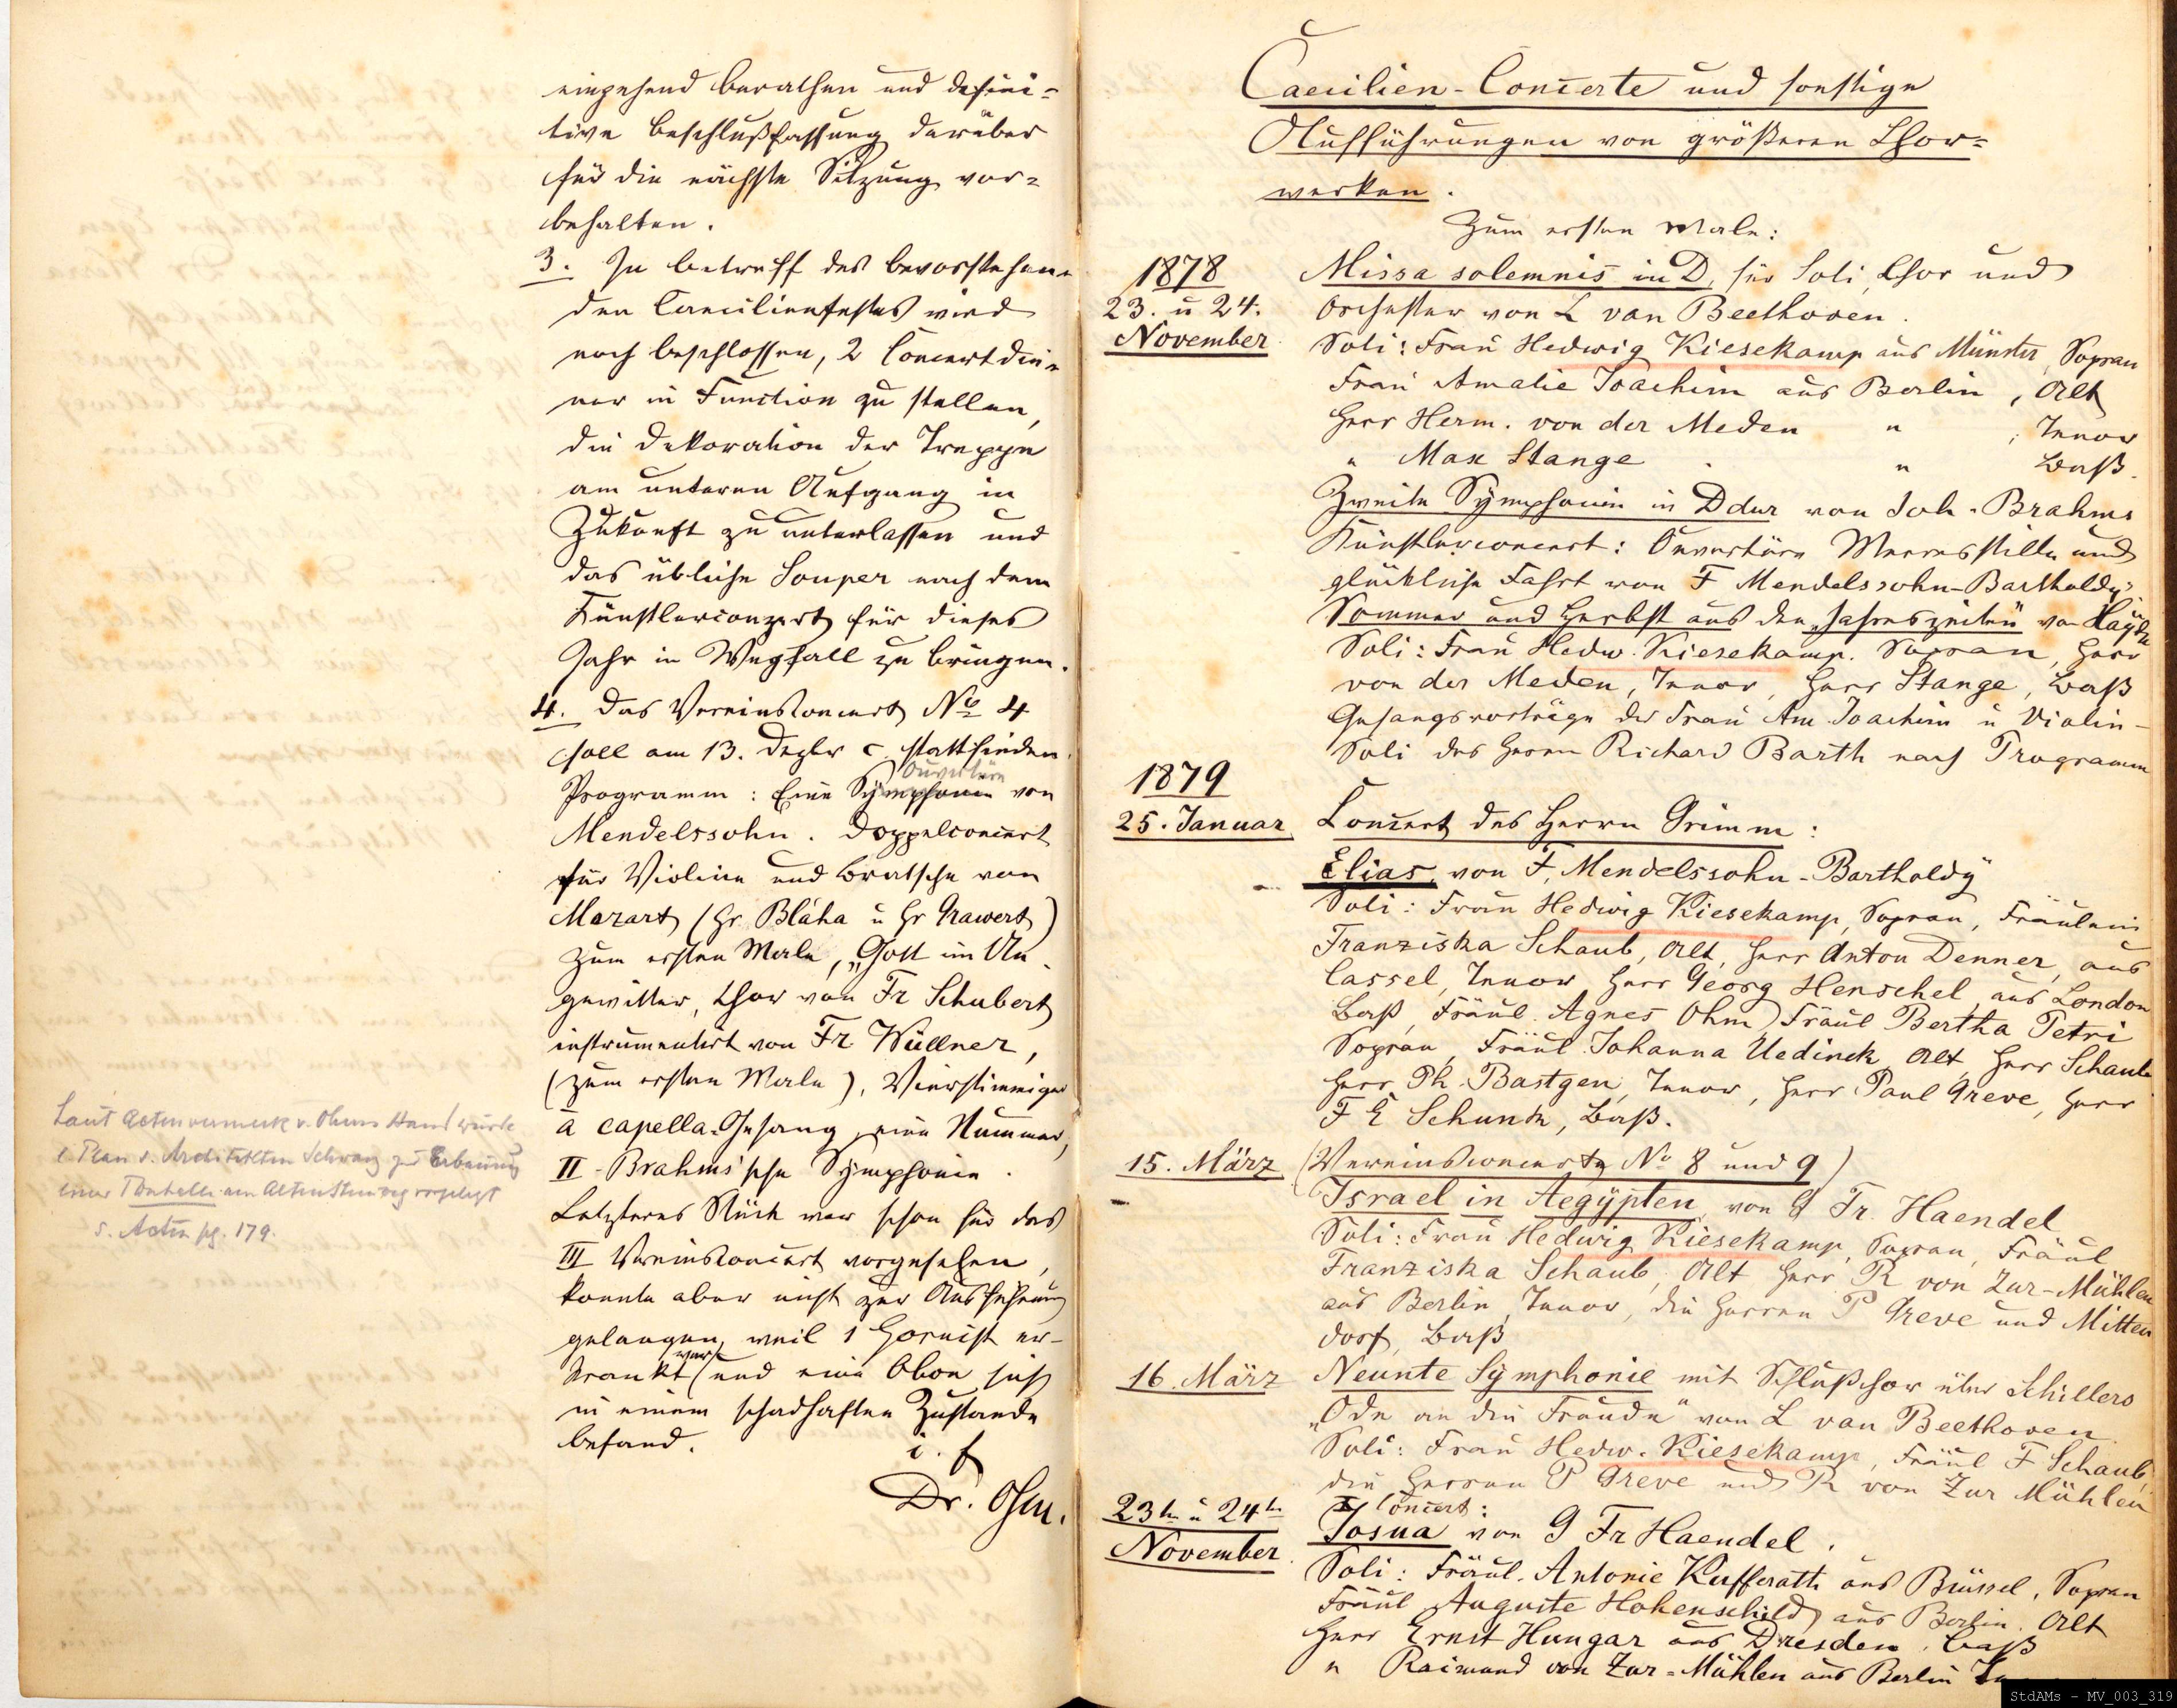 eingehend berathen und defini-
tive Beschlußfassung darüber
für die nächste Sitzung vor-
behalten.
3. In betreff des bevorstehen-
den Caecilienfestes wird
noch beschlossen, 2 Concertdie-
ner in Function zu stellen,
die Dekoration der Treppe
am unteren Aufgang in
Zukunft zu unterlassen und
das übliche Souper nach dem
Künstlerconzert für dieses
Jahr in Wegfall zu bringen.
4. Das Vereinsconcert No 4
soll am 13. Dezbr c. stattfinden.
Ouvertüre
Programm: Eine Symphonie von
Mendelssohn. Doppelconcert
für Violine und Bratsche von
Mozart (Hr Bláha u Hr Grawert)
zum ersten Male, „Gott im Un-
gewitter, Chor von Fr Schubert
instrumentirt von Fr Wüllner,
(zum ersten Male), Vierstimmiger
a capella-Gesang, eine Nummer,
II-Brahms'sche Symphonie.
Letzteres Stück war schon für das
III Vereinsconcert vorgesehen,
konnte aber nicht zur Ausführung
gelangen, weil 1 Hornist er-
krankt war und eine Oboe sich
in einem schadhaften Zustande
befand.
i. f
Dr. Ohm.
Laut Actenvermerk v. Ohms Hand wurde
e. Plan d. Architekten Schwarz zur Erbauung
einer Tonhalle am Alten Steinweg vorgelegt
s. Acten pg. 179.
Caecilien-Concerte und sonstige
Aufführungen von größeren Chor-
werken.
Zum ersten Male:
1878
23. u 24.
November
Missa solemnis in D, für Soli, Chor und
Orchester von L van Beethoven.
Soli: Frau Hedwig Kiesekamp aus Münster, Sopran
Frau Amalie Joachim aus Berlin, Alt
Herr Herm. von der Meden " , Tenor
" Max Stange " Baß.
Zweite Symphonie in Ddur von Joh. Brahms
Künstlerconcert: Ouvertüre Meeresstille und
glückliche Fahrt von F Mendelssohn-Bartholdy.
Sommer und Herbst aus den „Jahreszeiten" von Haydn
Soli: Frau Hedw. Kiesekamp. Sopran, Herr
von der Meden, Tenor, Herr Stange, Baß
Gesangsvorträge der Frau Am. Joachim u Violin-
Soli des Herrn Richard Barth nach Programm
1879
25. Januar
Concert des Herrn Grimm:
Elias, von F, Mendelssohn-Bartholdy
Soli: Frau Hedwig Kiesekamp, Sopran, Fräulein
Franziska Schaub, Alt, Herr Anton Denner, aus
Cassel, Tenor Herr Georg Henschel, aus London
Baß, Fräul. Agnes Ohm, Fräul Bertha Petri
Sopran, Fräul. Johanna Uedinck, Alt, Herr Schaub
Herr Ph. Bastgen, Tenor, Herr Paul Greve, Herr
F E Schunk, Baß.
15. März
(Vereinsconcerte No 8 und 9)
Israel in Aegypten, von G Fr. Haendel
Soli: Frau Hedwig Kiesekamp, Sopran, Fräul
Franziska Schaub, Alt Herr R von Zur-Mühlen
aus Berlin, Tenor, die Herren P Greve und Mitten
dorf, Baß
16. März
Neunte Symphonie mit Schlußchor über Schillers
„Ode an die Freude" von L van Beethoven
Soli: Frau Hedw. Kiesekamp, Fräul F Schaub,
die Herren P Greve und R von Zur Mühlen
23tn u 24tn
November
I Concert:
Josua von G Fr Haendel.
Soli: Fräul. Antonie Kufferath aus Brüssel, Sopran
Fräul Auguste Hohenschild aus Berlin. Alt
Herr Ernst Hungar aus Dresden, Baß
" Raimund von Zur-Mühlen aus Berlin
StdAMs - MV_003_319